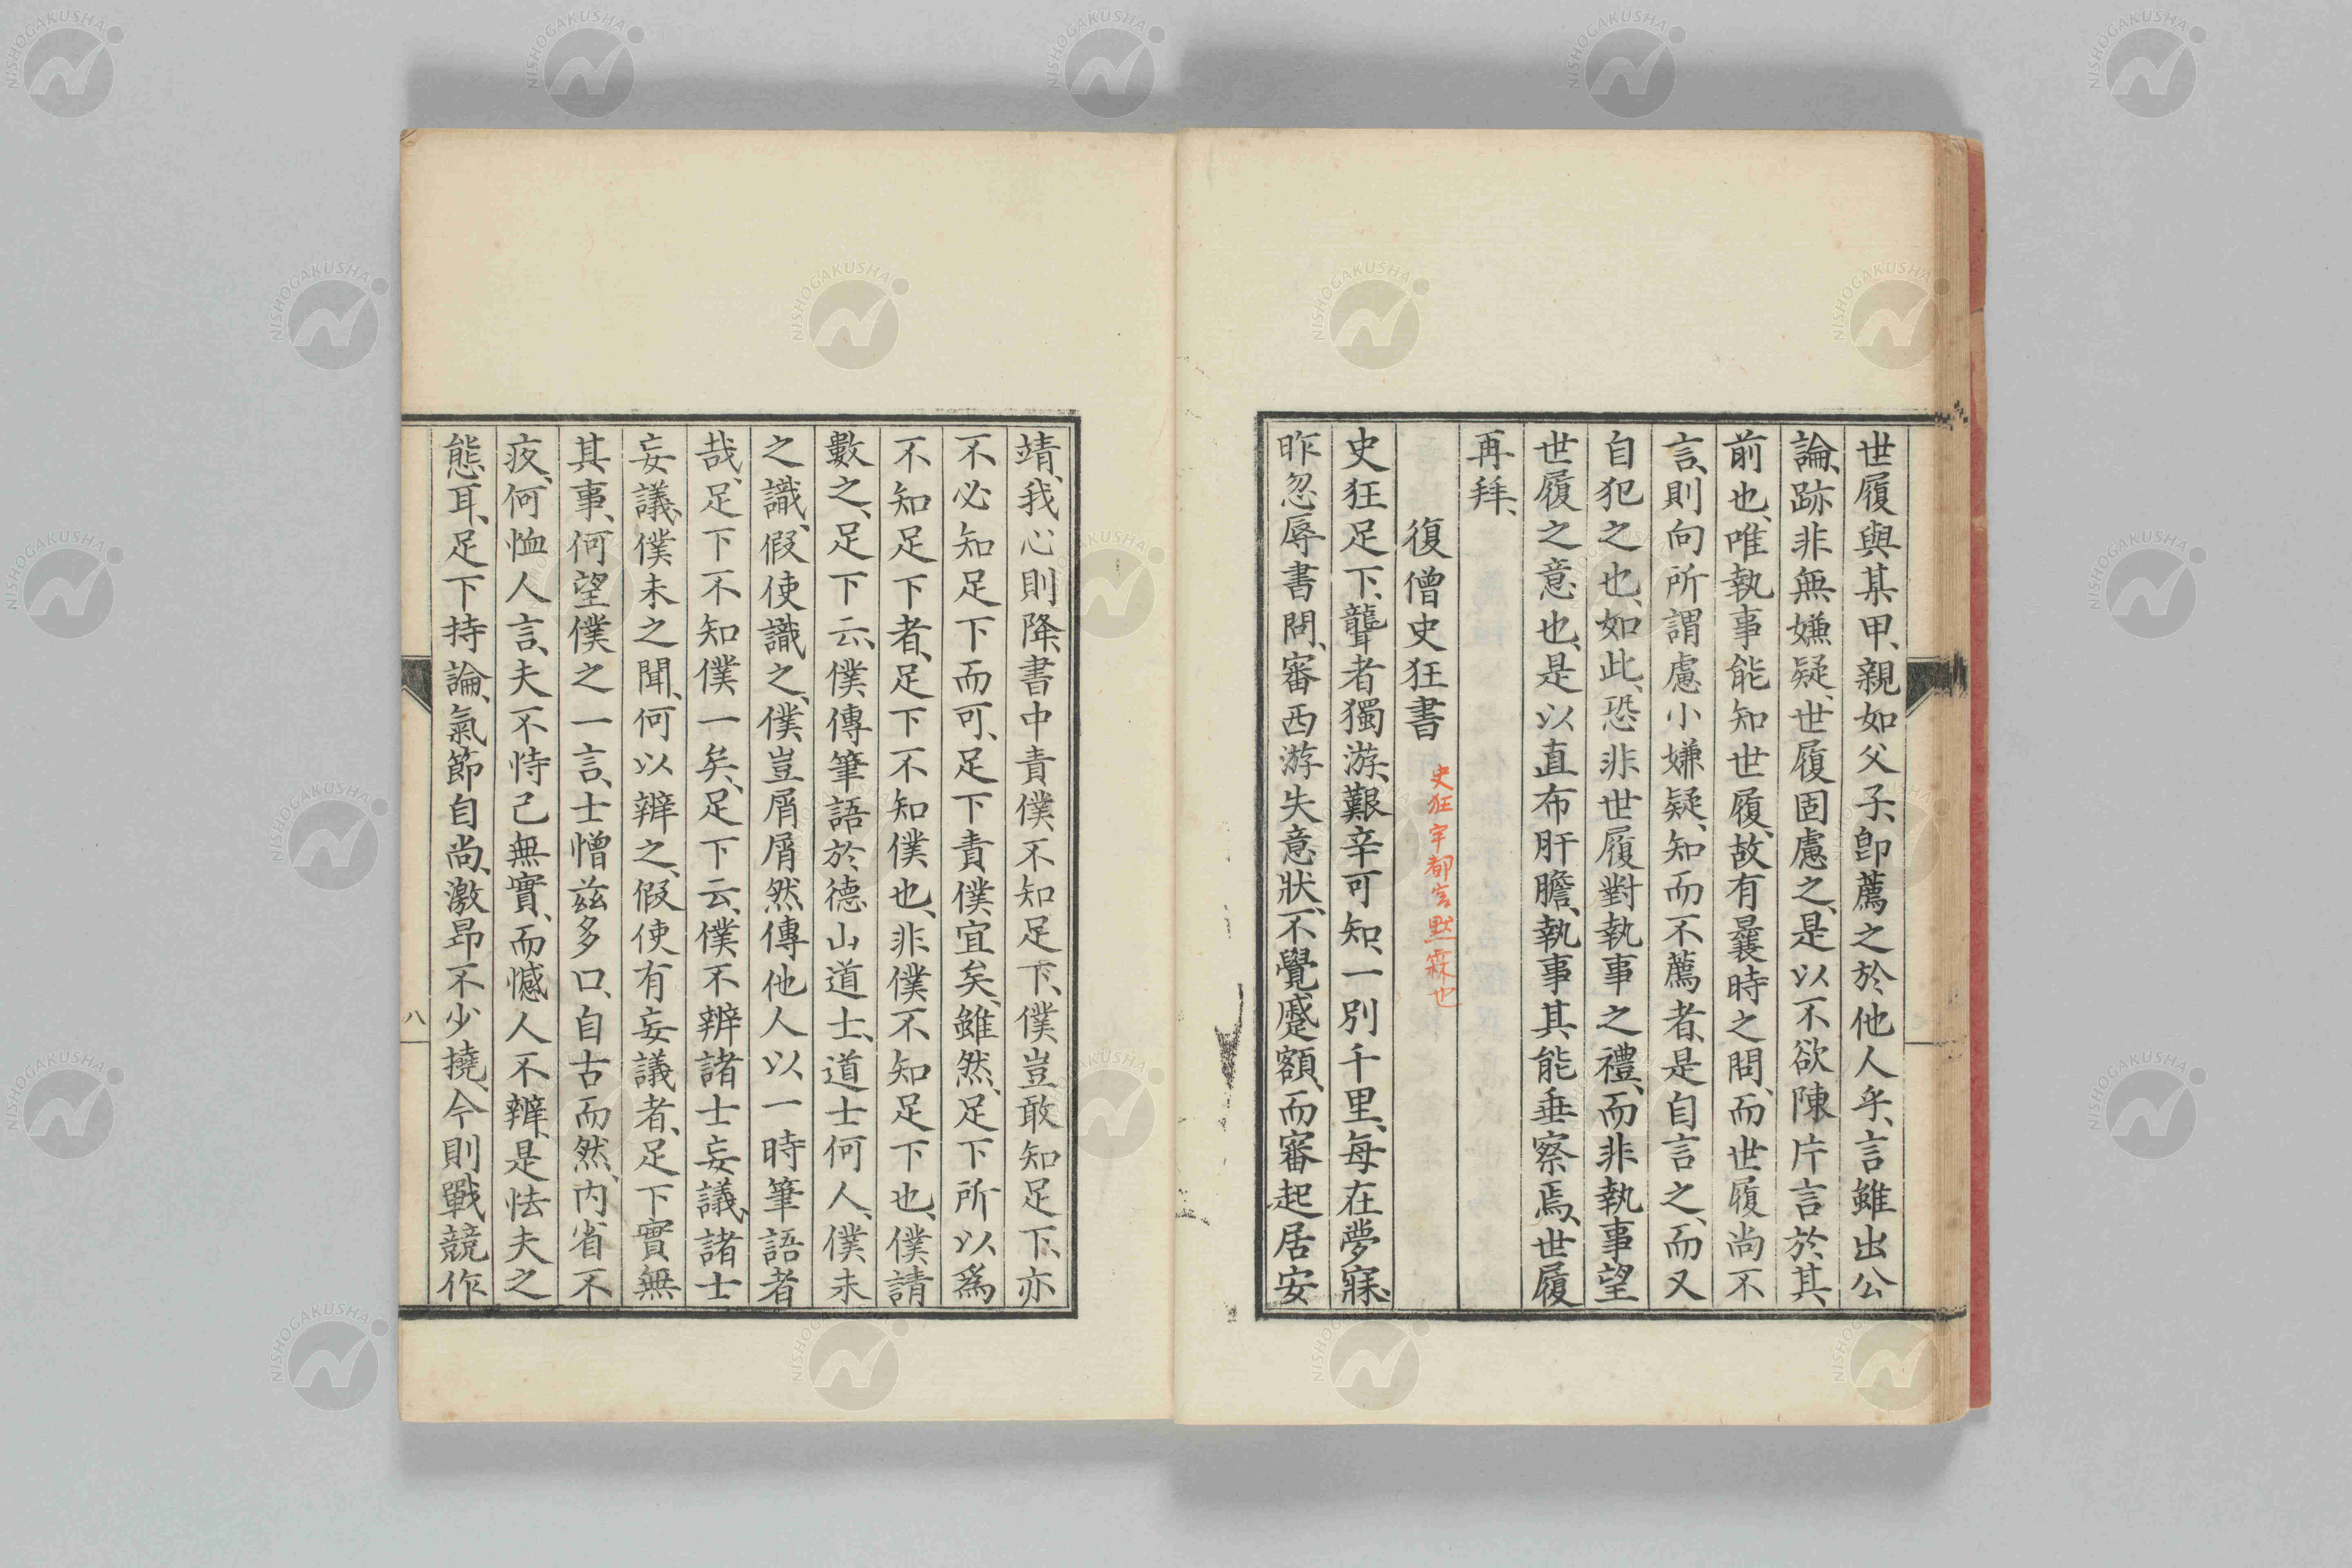 世履與某甲、親如父子、卽薦之於他人乎、言雖出公
論、跡非無嫌疑、世履固慮之、是以不欲陳片言於其
前也、唯執事能知世履、故有曩時之問、而世履尚不
言、則向所謂慮小嫌疑、知而不薦者、是自言之、而又
自犯之也、如此、恐非世履對執事之禮、而非執事望
世履之意也、是以直布肝膽、執事其能垂察焉、世履
再拜、
復僧史狂書
史狂宇都宮默霖也
史狂足下、聾者獨游、艱辛可知、一別千里、每在夢寐、
昨忽辱書問、審西游失意狀、不覺蹙額、而審起居安
靖、我心則降、書中責僕、不知足下、僕豈敢知足下、亦
不必知足下而可、足下責僕、宜矣、雖然、足下所以爲
不知足下者、足下不知僕也、非僕不知足下也、僕請
數之、足下云、僕傳筆語於德山道士、道士何人、僕未
之識、假使識之、僕豈屑屑然傳他人以一時筆語者
哉、足下不知僕一矣、足下云、僕不辨諸士妄議、諸士
妄議、僕未之聞、何以辨之、假使有妄議者、足下實無
其事、何望僕之一言、士憎茲多口、自古而然、內省不
疚、何恤人言、夫不恃己無實、而憾人不辨、是怯夫之
態耳、足下持論、氣節自尚、激昂不少撓、今則戰競作
八
NISHOGAKUSHA